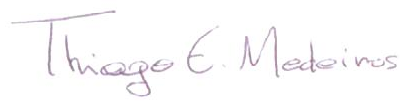 Thiago E. Medeiros